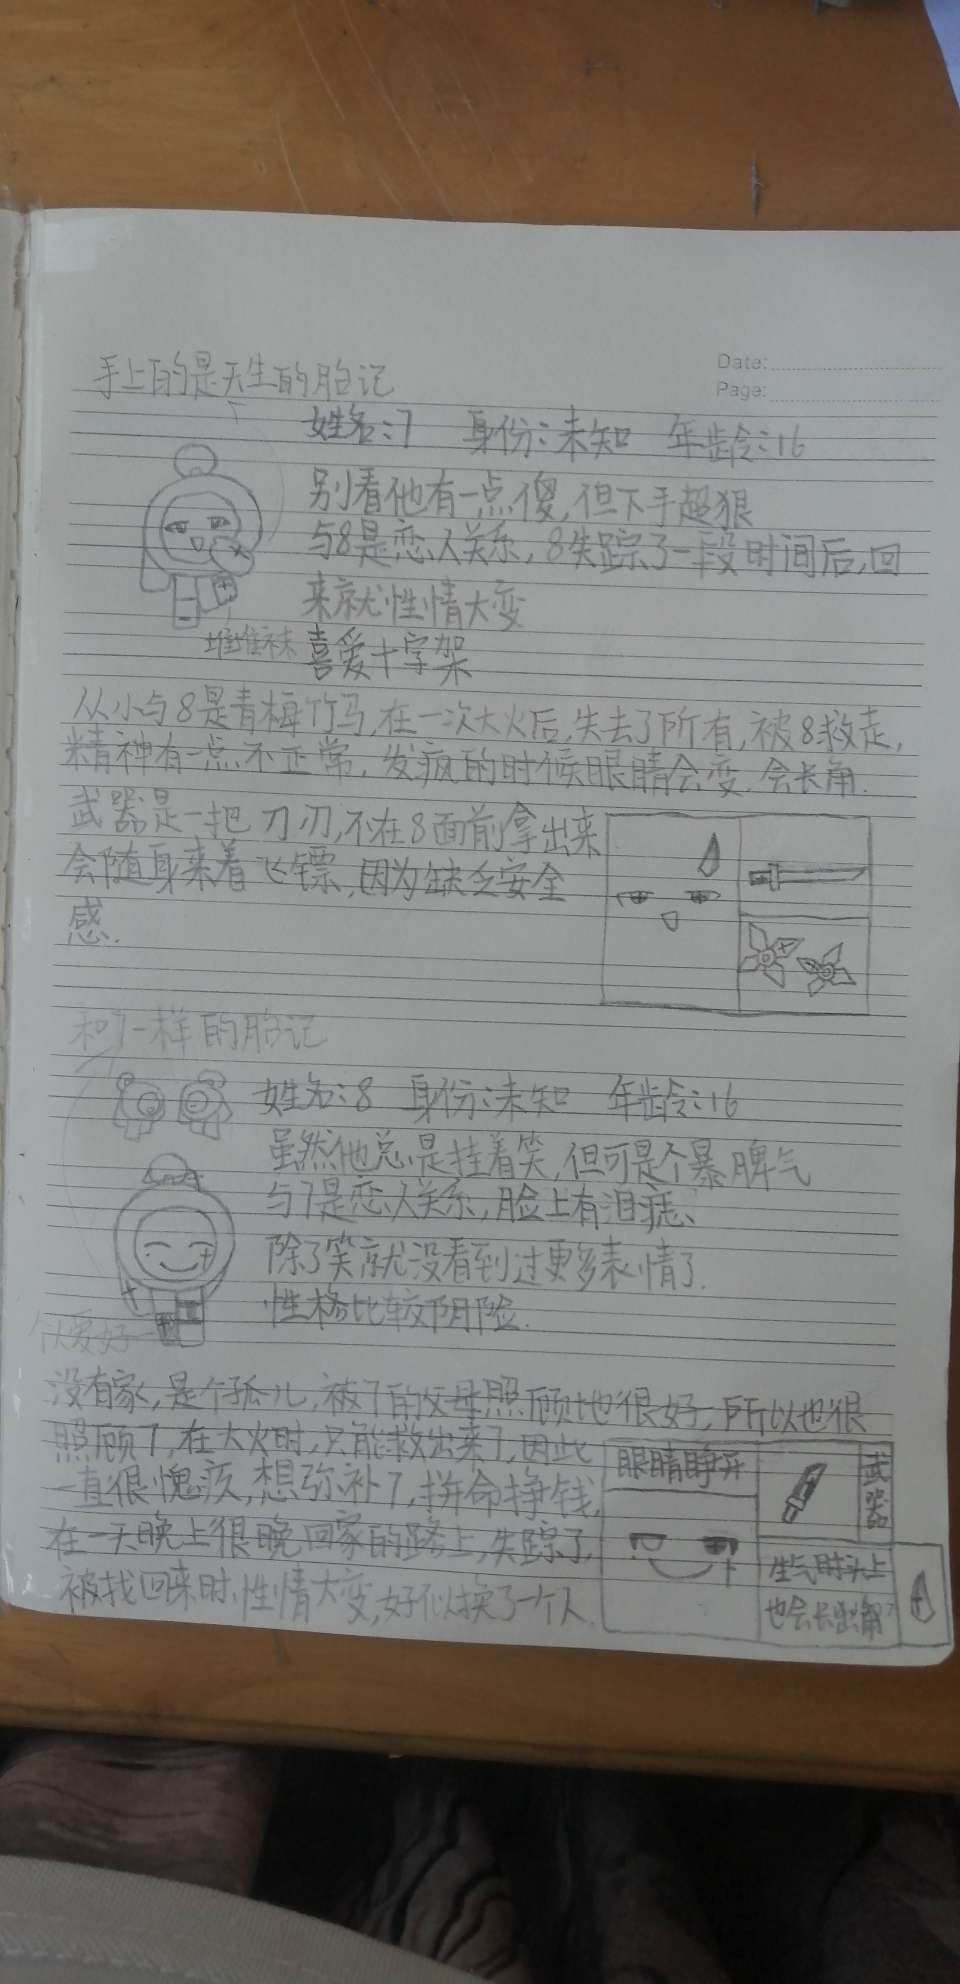 Date:
Page:
手上的是天生的胎记
姓名:7 身份:未知 年龄:16
别看他有一点傻,但下手超狠
与8是恋人关系,8失踪了一段时间后,回
来就性情大变
堆堆袜 喜爱十字架
从小与8是青梅竹马,在一次大火后,失去了所有,被8救走,
精神有一点不正常,发疯的时候眼睛会变,会长角.
武器是一把刀刃,不在8面前拿出来
会随身来着飞镖,因为缺乏安全
感.
和7一样的胎记
姓名:8 身份:未知 年龄:16
虽然他总是挂着笑,但可是个暴脾气
与7是恋人关系,脸上有泪痣、
除了笑就没看到过更多表情了.
性格比较阴险.
个人爱好
没有家,是个孤儿,被7的父母照顾地也很好,所以也很
照顾7,在大火时,只能救出来7,因此
一直很愧疚,想弥补7,拼命挣钱,
在一天晚上很晚回家的路上,失踪了,
被找回来时,性情大变,好似换了一个人.
眼睛睁开
武器
生气时头上
也会长出角